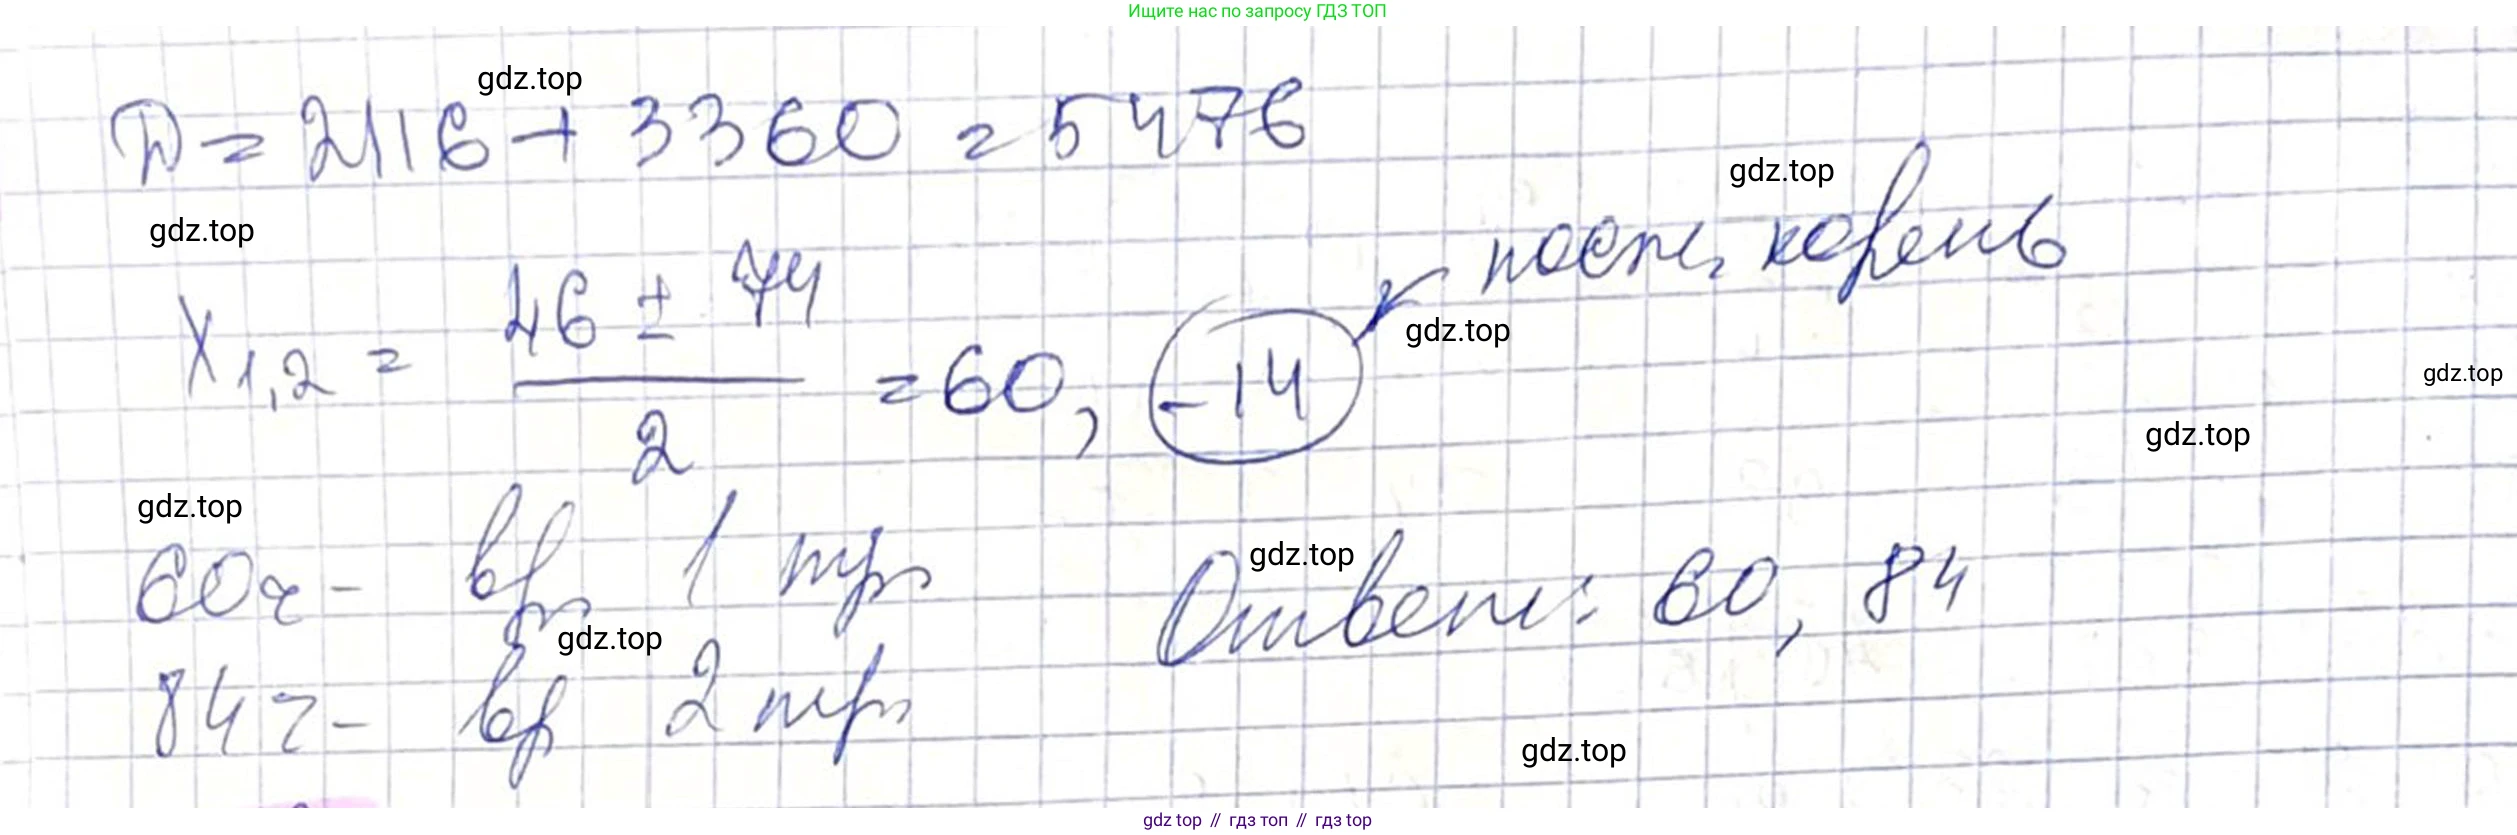 Ищите нас по запросу ГДЗ ТОП
gdz.top
D = 2116 + 3360 = 5476
gdz.top
gdz.top
посте, корень
X1,2 = (46 ± 74)/2 = 60, -14
gdz.top
gdz.top
gdz.top
gdz.top
60ч - вр 1 тр
gdz.top
Ответ: 60, 84
gdz.top
84ч - вр 2 тр
gdz.top
gdz top // гдз топ // гдз top